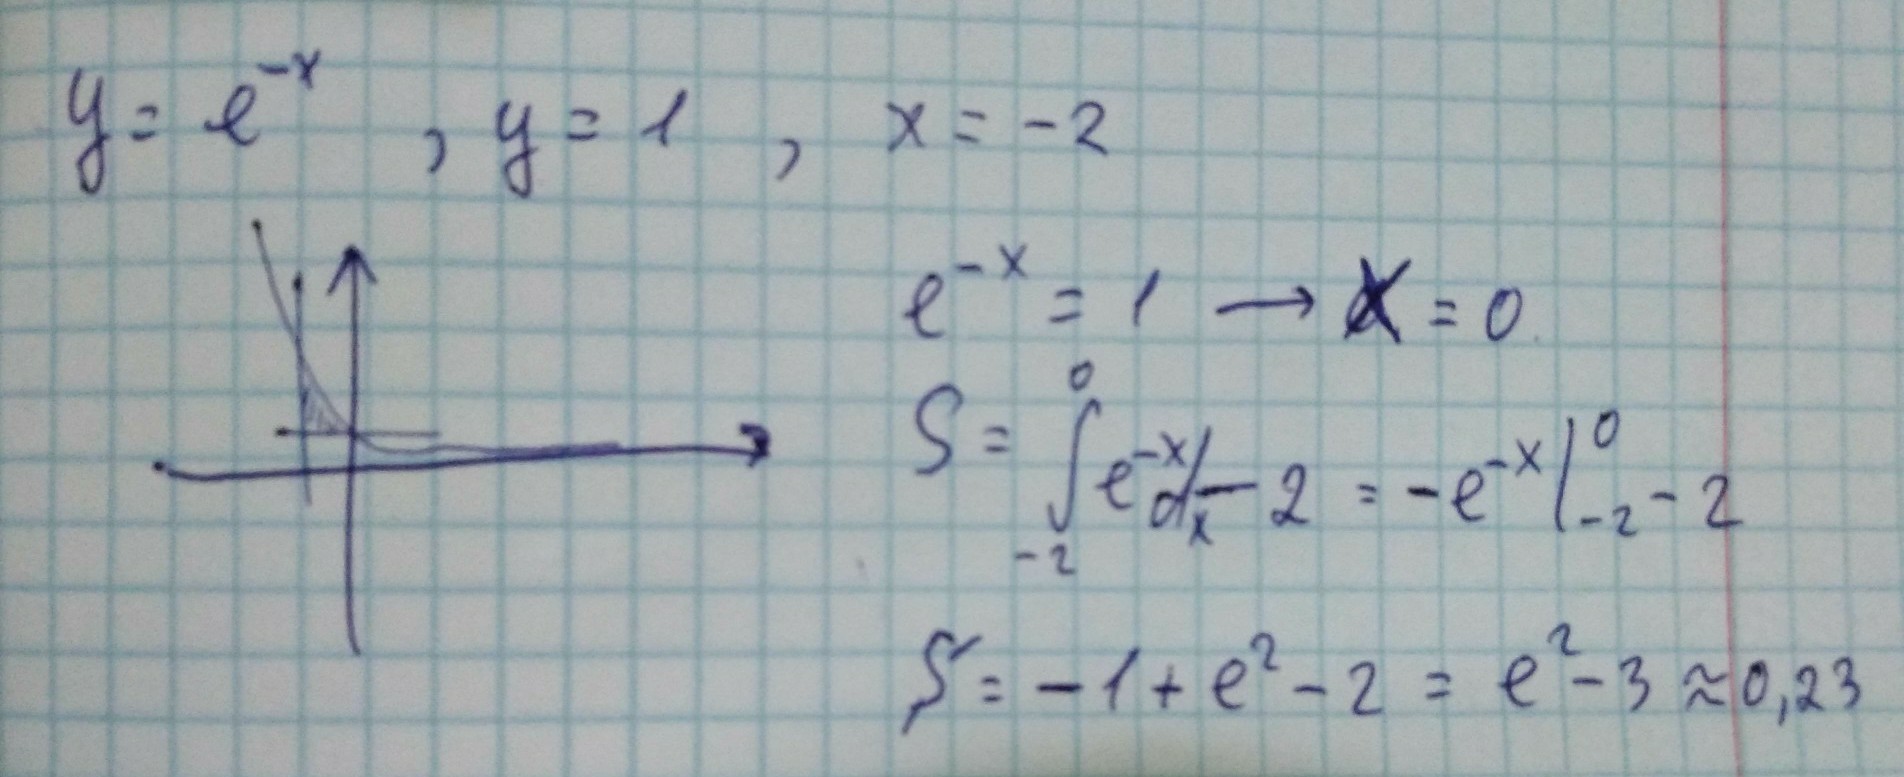 y = e^{-x} , y = 1 , x = -2
e^{-x} = 1 → x = 0
S = ∫_{-2}^{0} e^{-x} dx - 2 = -e^{-x} |_{-2}^{0} - 2
S = -1 + e^2 - 2 = e^2 - 3 ≈ 0,23